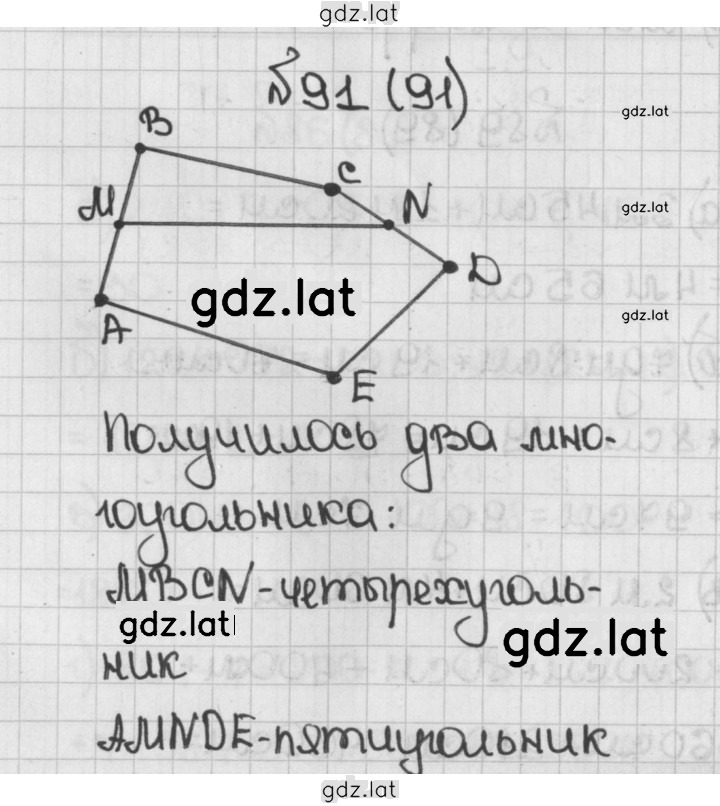 gdz.lat
№91 (91)
gdz.lat
B
C
gdz.lat
M
N
D
gdz.lat
gdz.lat
A
E
Получилось два мно-
гоугольника:
MBCN-четырехуголь-
gdz.lat
gdz.lat
ник
AMNDE-пятиугольник
gdz.lat